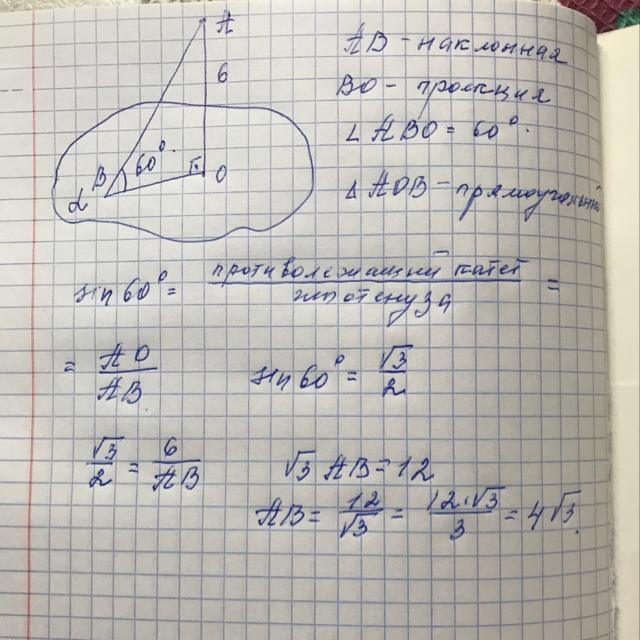 A
6
B 60°.
O
α
AB – наклонная
BO – проекция
∠ABO = 60°.
△AOB – прямоугольный
sin 60° = противолежащий катет / гипотенуза =
= AO / AB
sin 60° = √3 / 2
√3 / 2 = 6 / AB
√3 AB = 12
AB = 12 / √3 = 12·√3 / 3 = 4√3.